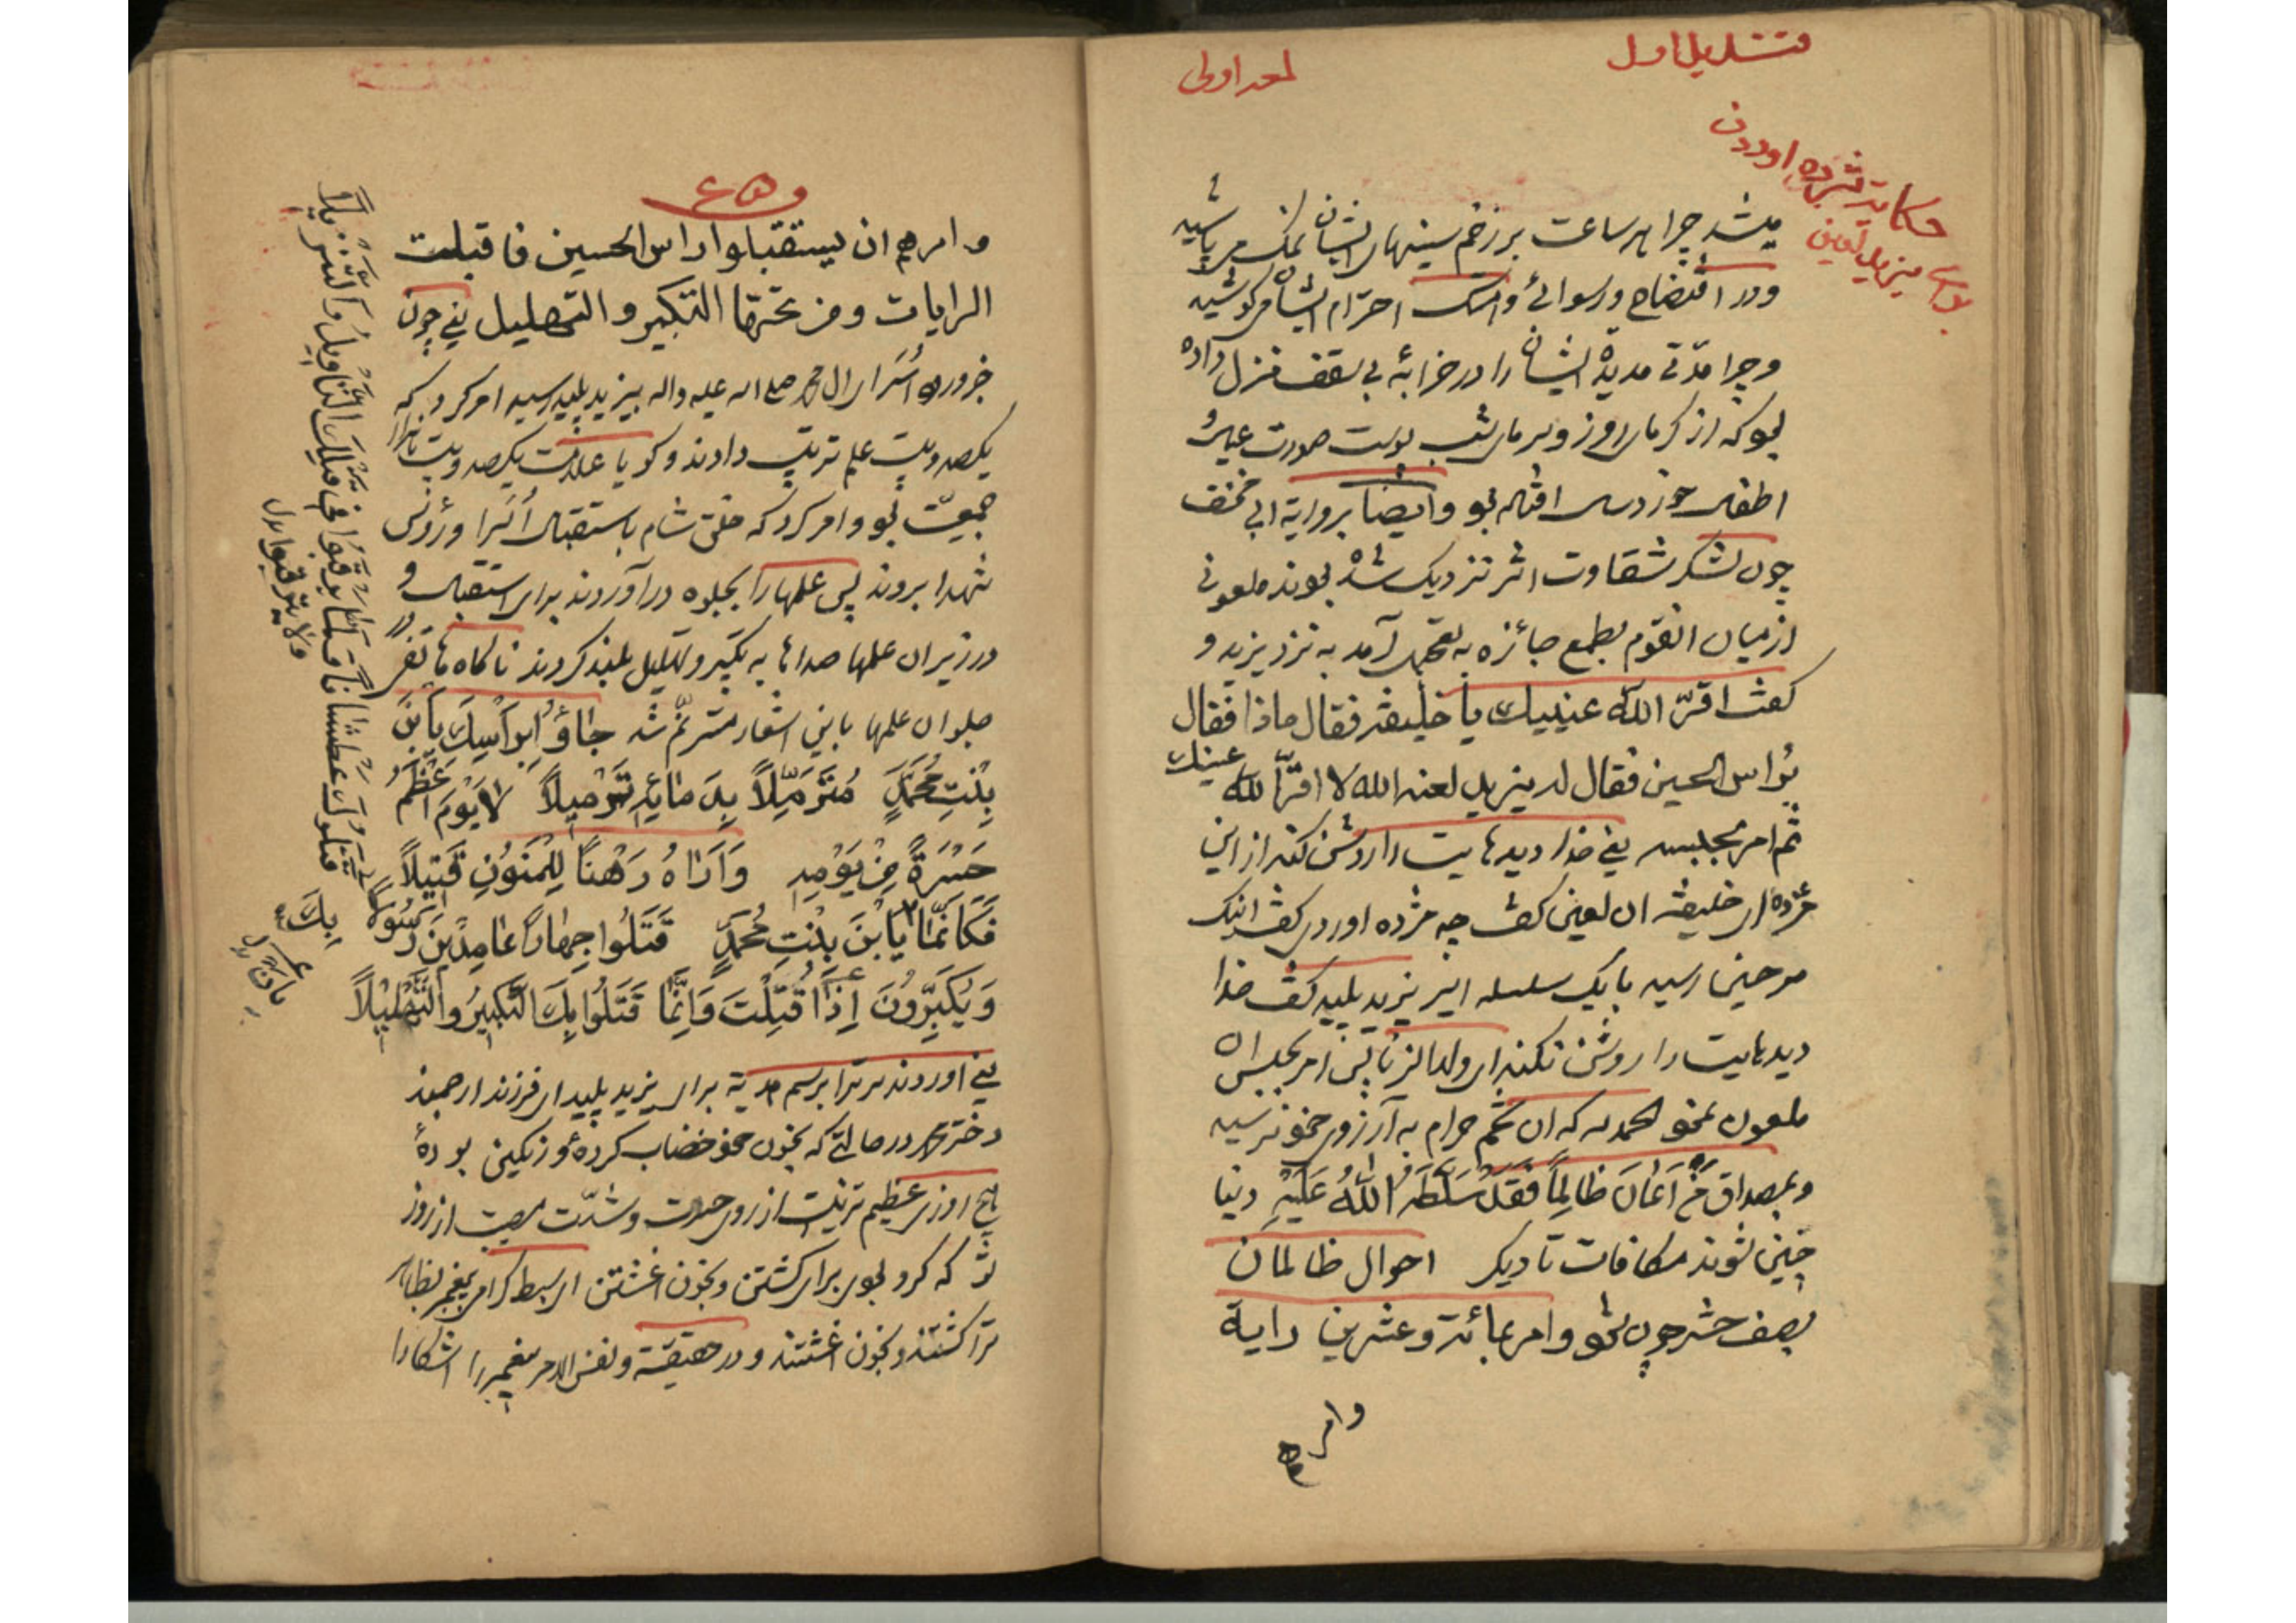 لمعه اولی
حکایت مژده اوردن
برای یزید لعین
میشد چرا هر ساعت بر زخم سینهای ایشان نمک می پاشید
و در افتضاح و رسوائی و احترام ایشان می کوشید
و چرا مدتی مدیدة ایشان را در خرابهٔ بی سقف منزل داده
بو که از کرمای روز و سرمای شب پوست صورت
اطفال خوردسال افتاده بو و ایضا بروایة ابی مخنف
چون لشکر شقاوت اثر نزدیک شد بوند ملعونی
از میان انقوم بطمع جائزه به تعجیل آمد به نزد یزید و
کفت اقرّ الله عینیك یا خلیفه فقال ماذا فقال
براس الحسین فقال له یزید لعنه الله لا اقرّ الله عینیك
ثم امر بحبسه یعنی خدا دیدهایت را روشن کند از این
مژده ای خلیفه ان لعین کفت چه مژده اوردی کفت اینک
سر حسین رسید با یک سلسله اسیر یزید پلید کفت خدا
دیدهایت را روشن نکند ای ولد الزنا پس امر بحبس ان
ملعون نمو الحمد لله که ان تخم حرام به آرزوی خو نرسید
و بمصداق مَنْ اَعَانَ ظَالِمًا فَقَدْ سَلَّطَهُ اللّٰهُ عَلَیْهِ دنیا
چنین شوند مکافات تا دیکر احوال ظالمان
بصف حشر چون نمو و امر بمائة و عشرین رایة
وامرهم
و امرهم ان یستقبلوا راس الحسین فاقبلت
الرایات و من تحتها التکبیر و التهلیل یعنی چون
خبر ورود اُسَرای ال محمد صلی الله علیه واله بیزید پلید رسید امر کرد که
یکصد و بیست علم ترتیب دادند و کویا علامت یکصد و بیست هزار
جمعیّت بو و امر کرد که خلق شام باستقبال اُسَرا و رؤس
شهدا بروند پس علمها را بجلوه در آوردند برای استقبال و
در زیر ان علمها صداها به تکبیر و تهلیل بلند کردند ناکاه هاتفی در
جلو ان علمها باین اشعار مترنّم شد جَاؤُا بِرَاْسِكَ یَابْنَ
بِنْتِ مُحَمَّدٍ مُتَرَمِّلًا بِدِمَائِهِ تَرْمِیلًا لَا یَوْمَ اَعْظَمُ
حَسْرَةً مِنْ یَوْمِهِ وَاَرَاهُ رَهْنًا لِلْمَنُونِ قَتِیلًا
فَکَاَنَّمَا یَابْنَ بِنْتِ مُحَمَّدٍ قَتَلُوا جِهَارًا عَامِدِینَ رَسُولًا
وَیُکَبِّرُونَ اِذَا قُتِلْتَ وَاِنَّمَا قَتَلُوا بِكَ التَّکْبِیرَ وَالتَّهْلِیلًا
یعنی اوردند سر ترا برسم هدیة برای یزید پلید ای فرزند ارجمند
دختر محمد در حالتی که بخون خو خضاب کرده و رنکین بودهٔ
هیچ روزی عظیم تر نیست از روی حسرت و شدّت مصیبت از روز
تو که کرو بوی برای کشتن و بخون اغشتن ای سبط کرامی پیغمبر بظاهر
ترا کشتند و بخون اغشتند و در حقیقة و نفس الامر پیغمبر را اشکارا
قَتَلُوكَ عَطْشَانًا وَلَمَّا یَرْقُبُوا فِی قَتْلِكَ التَّاْوِیلَ وَالتَّنْزِیلًا
ولا یترقبوا بدل